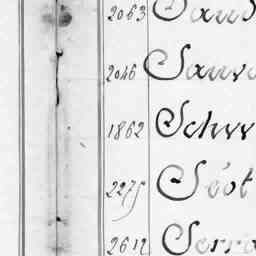 2063 Sand
2046 Sauv
1862 Schw
2275 Séot
2612 Serra